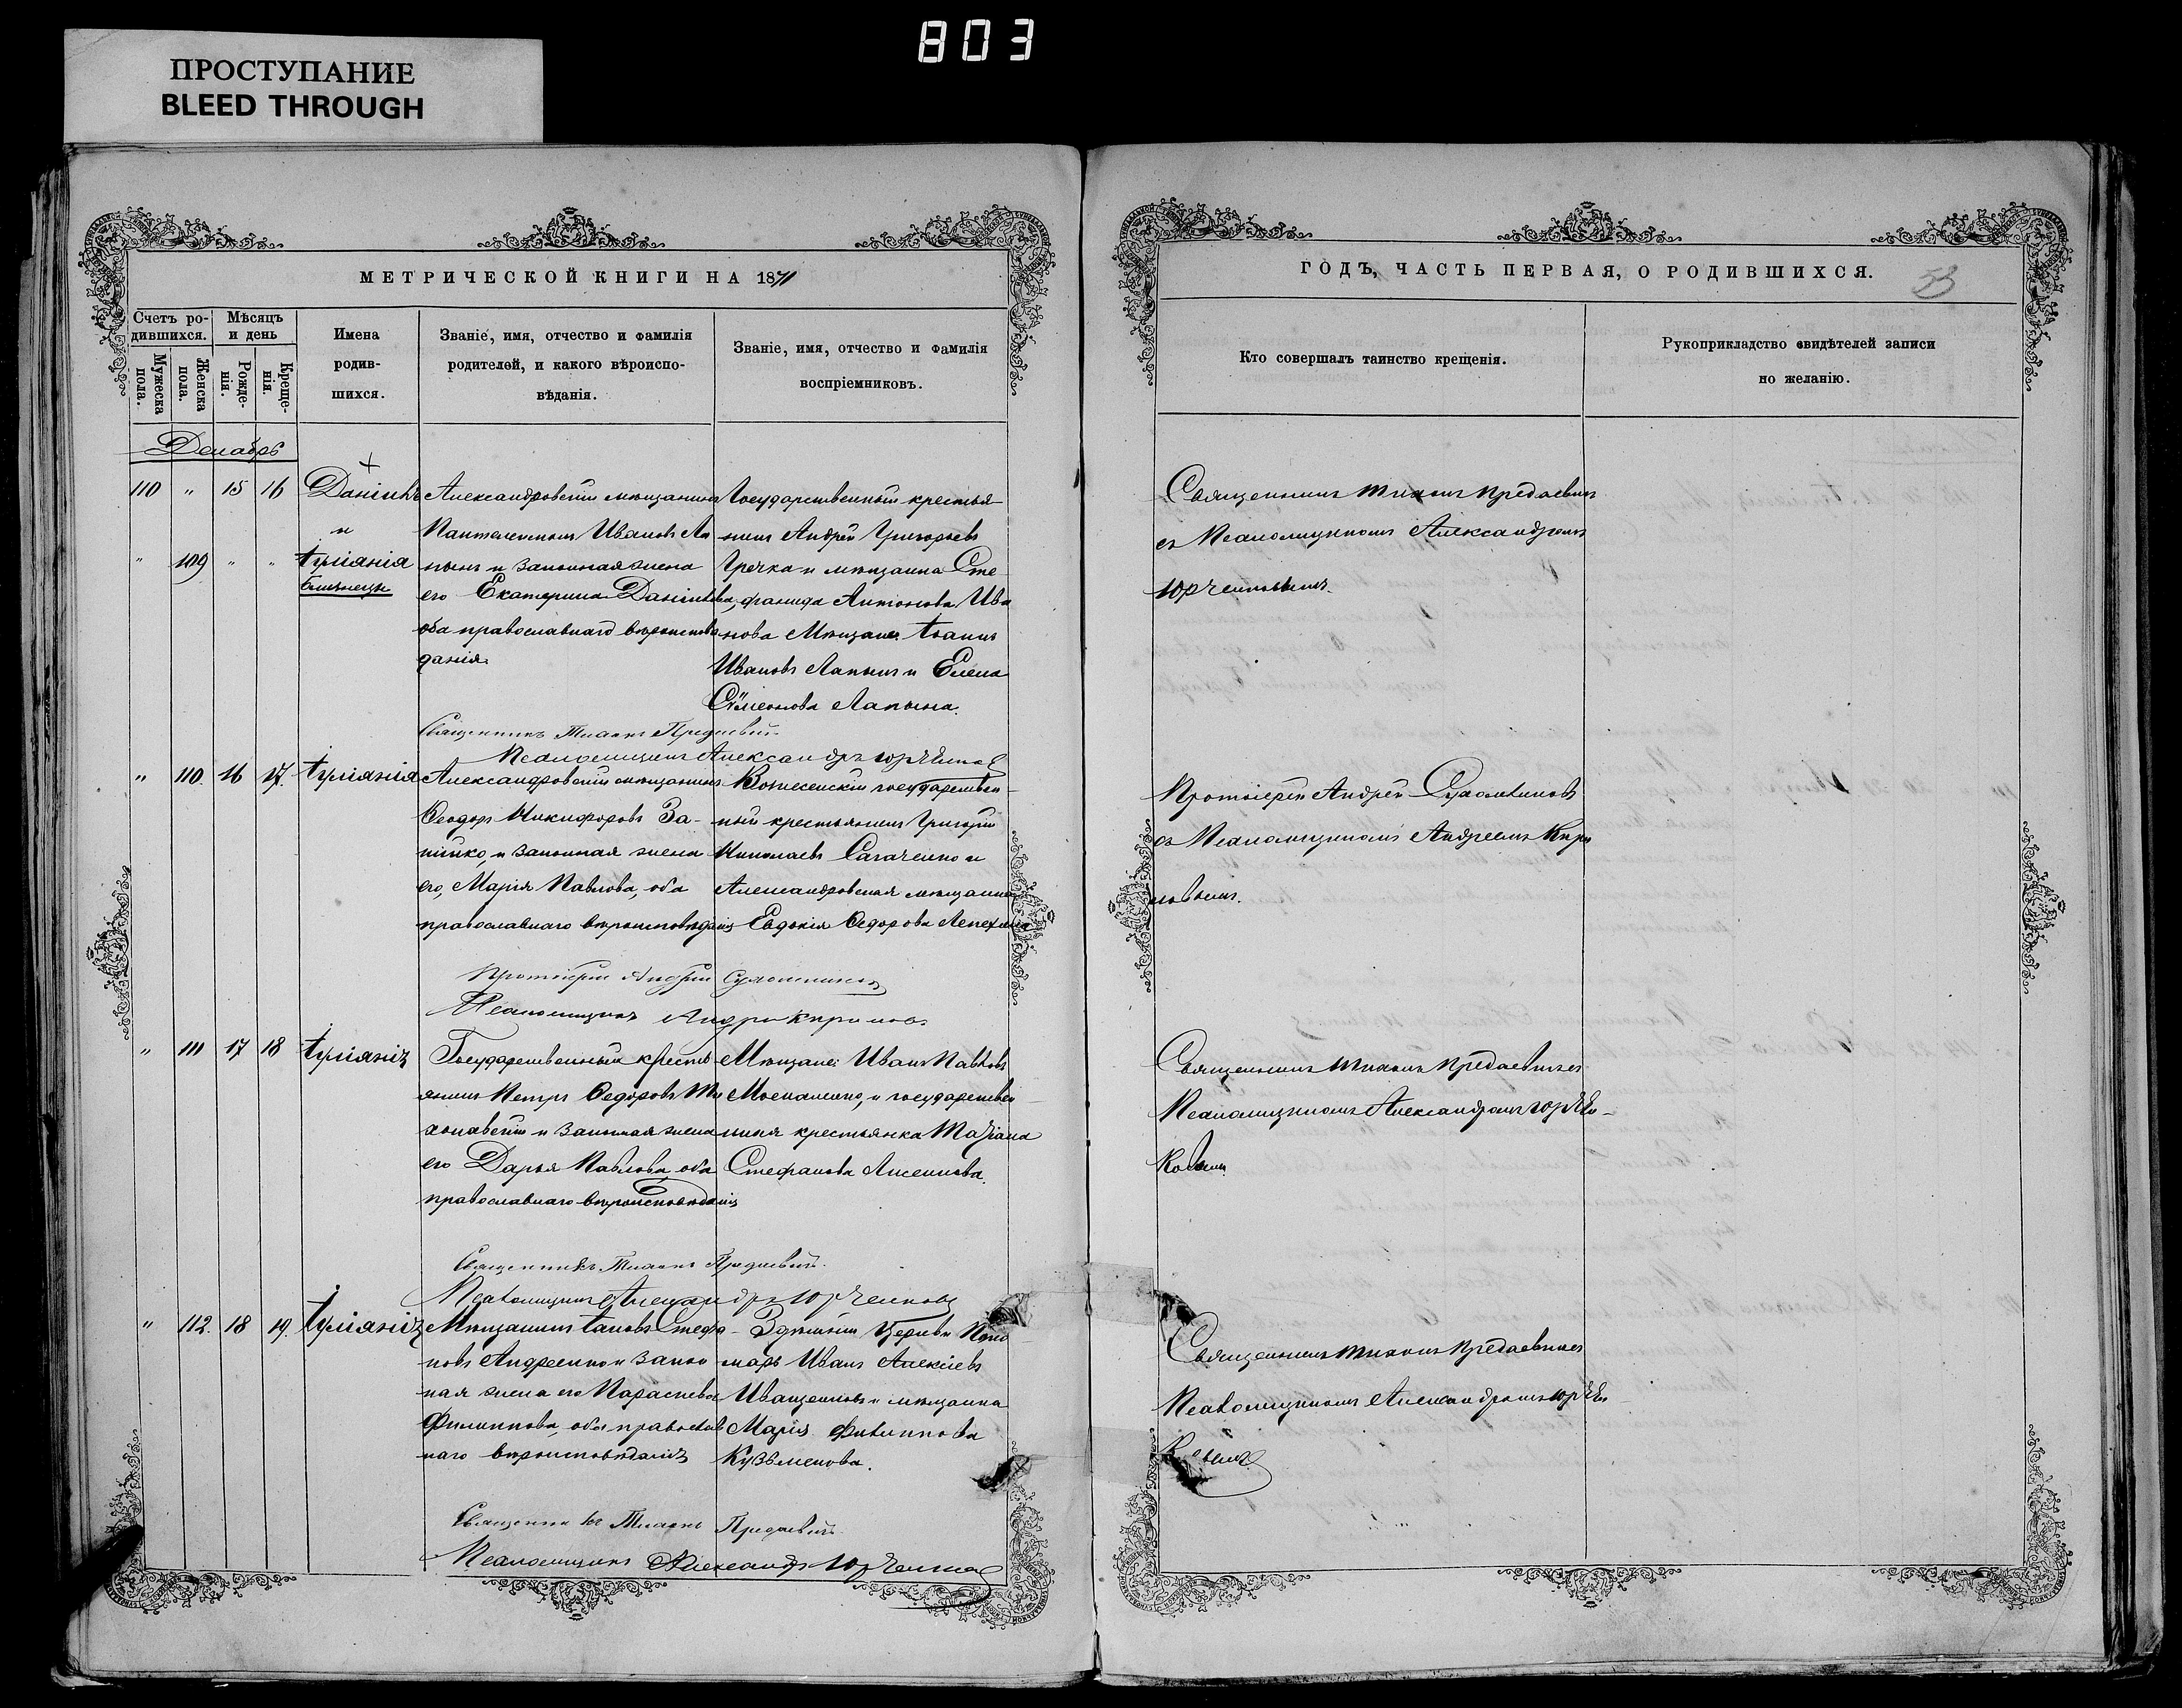 803
ПРОСТУПАНИЕ
BLEED THROUGH
МЕТРИЧЕСКОЙ КНИГИ НА 1871
Счетъ ро-
дившихся.
Мужеска
пола.
Женска
пола.
Мѣсяцъ
и день
Рожде-
нія.
Креще-
нія.
Имена
родив-
шихся.
Званіе, имя, отчество и фамилія
родителей, и какого вѣроиспо-
вѣданія.
Званіе, имя, отчество и фамилія
воспріемниковъ.
Декабрь
110 " 15 16 Даніилъ
и
" 109 " " Іуліанія
близнецы
Александровскій мѣщанинъ
Пантелеимонъ Ивановъ Ла
пынъ и законная жена
его Екатерина Даніилова,
оба православнаго вѣроиспов
данія.
Государственный крестья
нинъ Андрей Григорьевъ
Гречка и мѣщанка Сте
фанида Антонова Ива
нова Мѣщане Іоаннъ
Ивановъ Лапынъ и Елена
Сѵмеонова Лапына.
Священникъ Тихонъ
Псаломщикъ Александръ Юрченко
" 110. 16 17. Іуліанія
Александровскій мѣщанинъ
Ѳеодоръ Никифоровъ За-
ничко, и законная жена
его, Марія Павлова, оба
православнаго вѣроисповѣданія
Вознесенскій государствен-
ный крестьянинъ Григорій
Николаевъ Сагаченко и
Александровская мѣщанка
Евдокія Ѳедорова Лепехина
Протоіерей Андрей
Псаломщикъ Андрей Кириловъ
" 111 17 18 Іуліанія
Государственный кресть
янинъ Петръ Ѳедоровъ Ти
хонавскій и законная жена
его Дарья Павлова оба
православнаго вѣроисповѣданія
Мѣщане: Иванъ Павловъ
Москаленко, и государствен-
ная крестьянка Татіана
Стефанова Аксенова.
Священникъ Тихонъ
Псаломщикъ Александръ Юрченковъ
" 112. 18 19. Іуліанія
Мѣщанинъ Іаковъ Стефа-
новъ Андреенко и закон
ная жена его Параскева
Филиппова, оба православ
наго вѣроисповѣданія
Здѣшній Церкви Поно
марь Иванъ Алексіевъ
Иващенковъ и мѣщанка
Марія Филиппова
Кузьменова.
Священникъ Тихонъ
Псаломщикъ Александръ Юрченко
ГОДЪ, ЧАСТЬ ПЕРВАЯ, О РОДИВШИХСЯ.
53
Кто совершалъ таинство крещенія.
Рукоприкладство свидѣтелей записи
по желанію.
Священникъ Тихонъ
съ Псаломщикомъ Александромъ
Юрченковымъ.
Протоіерей Андрей
съ Псаломщикомъ Андреемъ Кири
ловымъ.
Священникъ Тихонъ
Псаломщикомъ Александромъ Юрчен-
ковымъ
Священникъ Тихонъ
Псаломщикомъ Александромъ Юрчен-
ковымъ